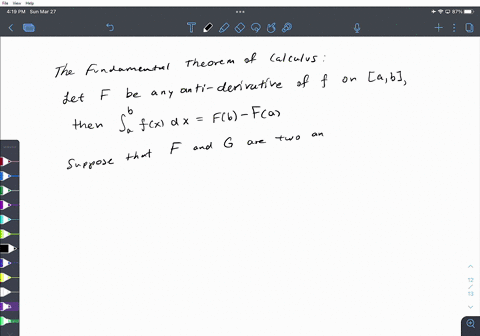 4:19 PM Sun Mar 27
87%
The Fundamental Theorem of Calculus:
Let F be any anti-derivative of f on [a,b],
then ∫_a^b f(x) dx = F(b) - F(a)
Suppose that F and G are two an
12
13